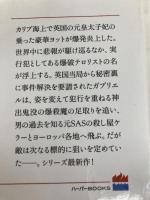 カリブ海上で英国の元皇太子妃の
乗った豪華ヨットが爆発炎上した。
世界中に悲報が駆け巡るなか、実
行犯としてある爆破テロリストの名
が浮上する。英国当局から秘密裏
に事件解決を要請されたガブリエ
ルは、姿を変えて犯行を重ねる神
出鬼没の爆殺魔の足取りを追い、
男の過去を知る元SASの殺し屋ケ
ラーとヨーロッパ各地へ飛ぶ。だが
敵は次なる標的に狙いを定めてい
た――。シリーズ最新作!
ハーパーBOOKS